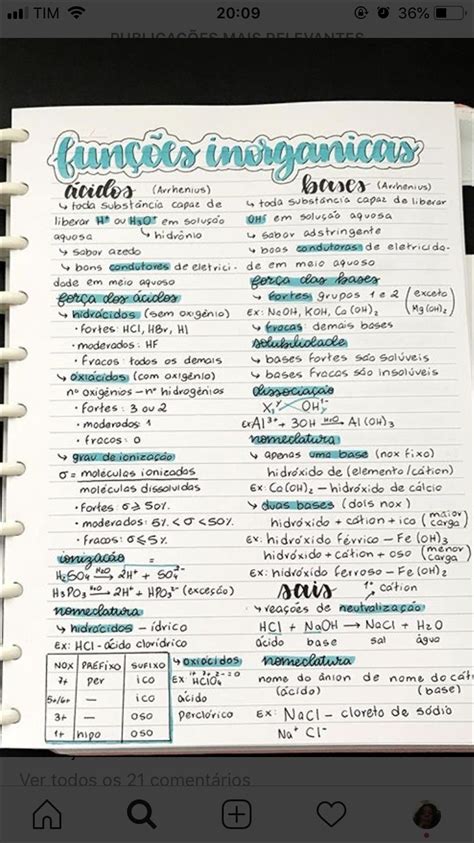 TIM 20:09 36%
PUBLICAÇÕES MAIS RELEVANTES
funções inorganicas
ácidos (Arrhenius)
↳ toda substância capaz de
liberar H⁺ ou H₃O⁺ em solução
aquosa ↳ hidrônio
↳ sabor azedo
↳ bons condutores de eletrici-
dade em meio aquoso
força dos ácidos
↳ hidrácidos (sem oxigênio)
• fortes: HCl, HBr, HI
• moderados: HF
• fracos: todos os demais
↳ oxiácidos (com oxigênio)
nº oxigênios - nº hidrogênios
• fortes: 3 ou 2
• moderados: 1
• fracos: 0
↳ grau de ionização
σ = moléculas ionizadas
moléculas dissolvidas
• fortes: σ ≥ 50%
• moderados: 5% < σ < 50%
• fracos: σ ≤ 5%
ionização
H₂SO₄ H₂O→ 2H⁺ + SO₄²⁻
H₃PO₃ H₂O→ 2H⁺ + HPO₃²⁻ (exceção)
nomeclatura
↳ hidrácidos - ídrico
EX: HCl - ácido clorídrico
NOX PREFIXO SUFIXO
7+ per ico
5+/6+ — ico
3+ — oso
1+ hipo oso
↳ oxiácidos
EX: HClO₄
ácido
perclórico
bases (Arrhenius)
↳ toda substância capaz de liberar
OH⁻ em solução aquosa
↳ sabor adstringente
↳ boas condutoras de eletricida-
de em meio aquoso
força das bases
↳ fortes: grupos 1 e 2 (exceto Mg(OH)₂)
EX: NaOH, KOH, Ca(OH)₂
↳ fracas: demais bases
solubilidade
↳ bases fortes são solúveis
↳ bases fracas são insolúveis
dissociação
X OH¹⁻
EX: Al³⁺ + 3OH H₂O→ Al(OH)₃
nomeclatura
↳ apenas uma base (nox fixo)
hidróxido de (elemento/cátion)
EX: Ca(OH)₂ - hidróxido de cálcio
↳ duas bases (dois nox)
hidróxido + cátion + ico (maior carga)
EX: hidróxido férrico - Fe(OH)₃
hidróxido + cátion + oso (menor carga)
EX: hidróxido ferroso - Fe(OH)₂
sais 1º cátion
↳ reações de neutralização
HCl + NaOH → NaCl + H₂O
ácido base sal água
nomeclatura
nome do ânion de nome do cát
(ácido) (base)
EX: NaCl - cloreto de sódio
Na⁺ Cl⁻
Ver todos os 21 comentários